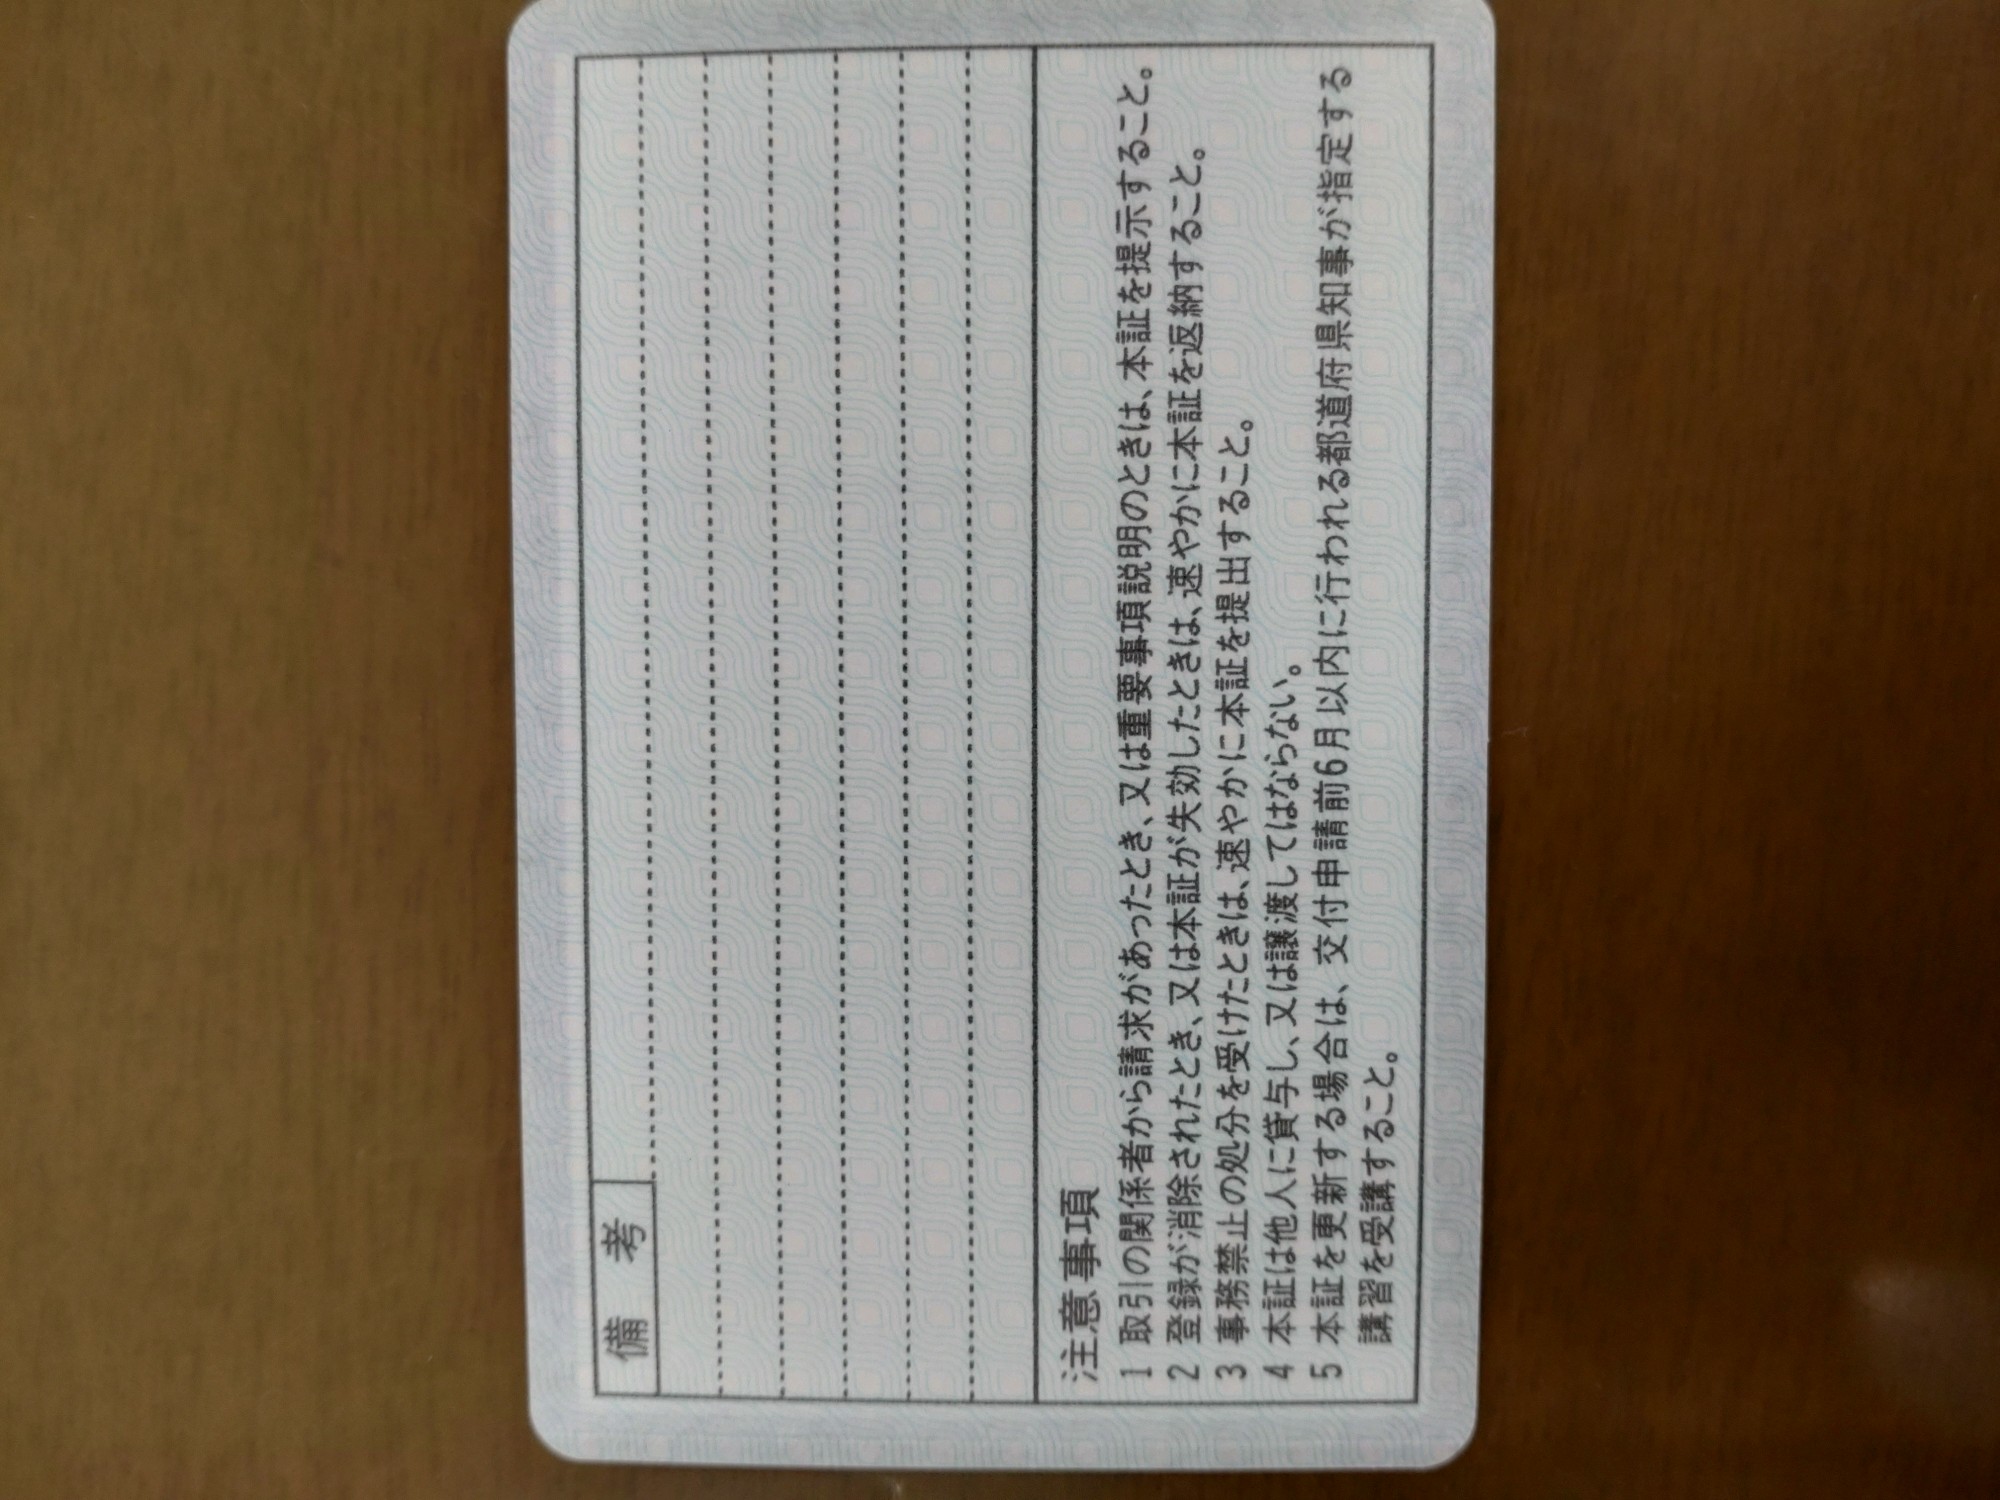 備 考
注意事項
1 取引の関係者から請求があったとき、又は重要事項説明のときは、本証を提示すること。
2 登録が消除されたとき、又は本証が失効したときは、速やかに本証を返納すること。
3 事務禁止の処分を受けたときは、速やかに本証を提出すること。
4 本証は他人に貸与し、又は譲渡してはならない。
5 本証を更新する場合は、交付申請前6月以内に行われる都道府県知事が指定する
講習を受講すること。